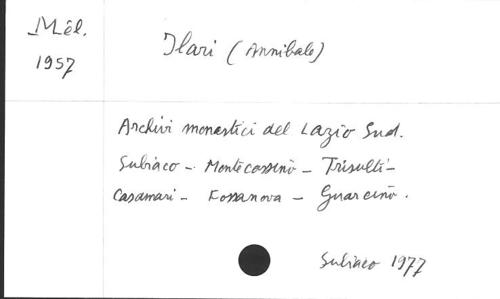 Mél.
1957
Ilari (Annibale)
Archivi monastici del Lazio Sud.
Subiaco - Montecassino - Trisulti -
Casamari - Fossanova - Guarcino.
Subiaco 1977